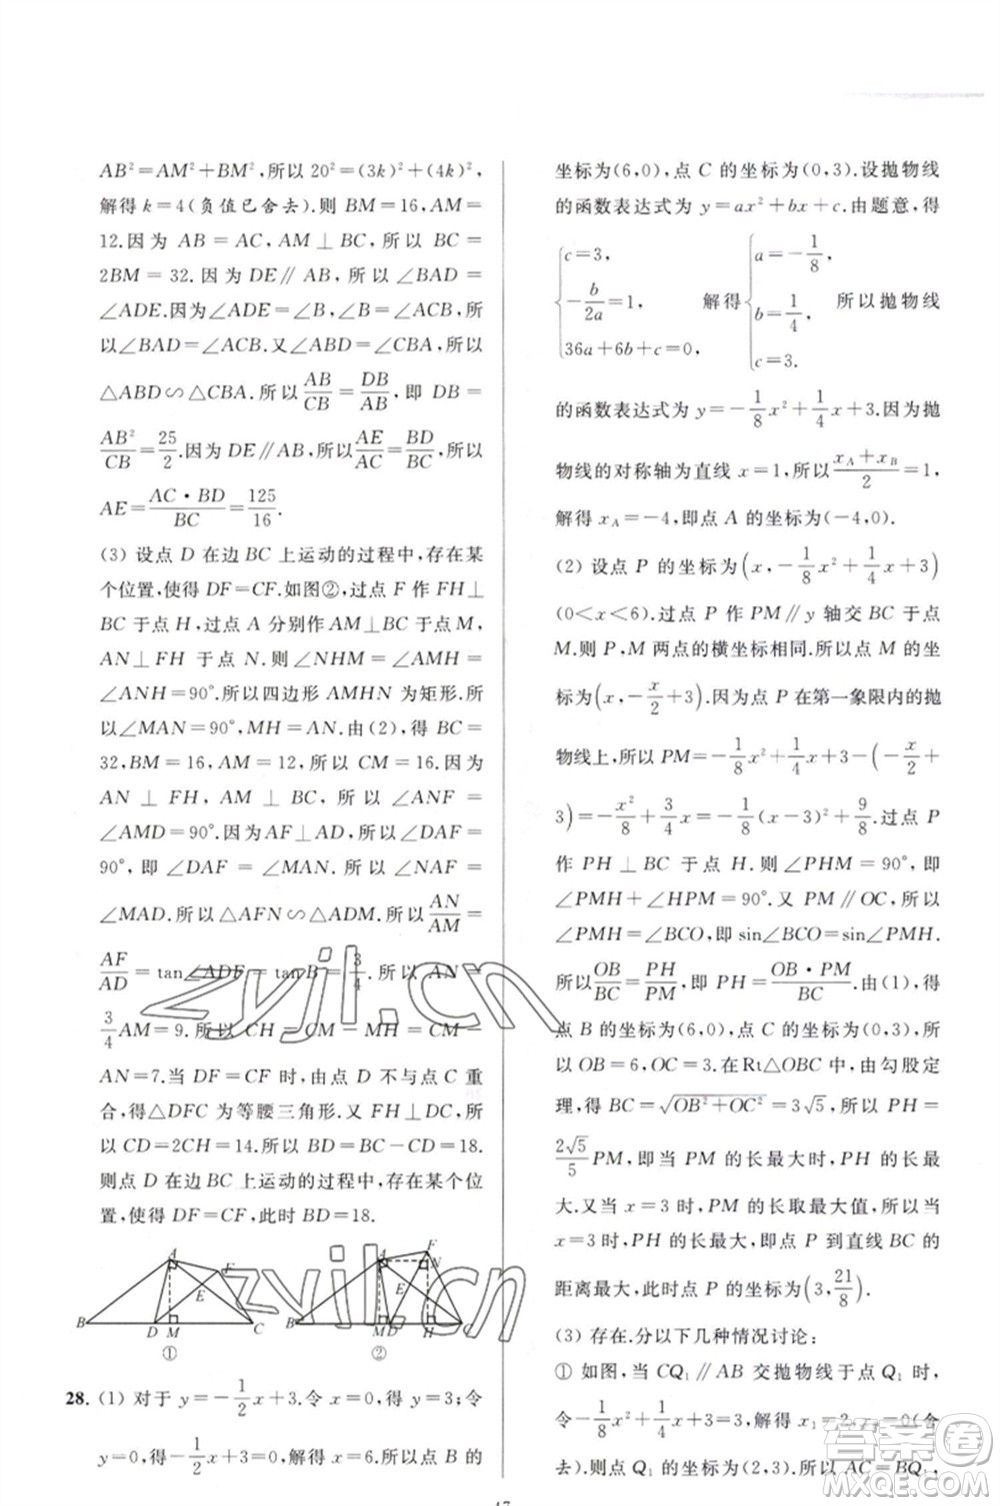 AB²=AM²+BM²,所以20²=(3k)²+(4k)²,
解得k=4(负值已舍去).则BM=16,AM=
12.因为AB=AC,AM⊥BC,所以BC=
2BM=32.因为DE∥AB,所以∠BAD=
∠ADE.因为∠ADE=∠B,∠B=∠ACB,所
以∠BAD=∠ACB.又∠ABD=∠CBA,所以
△ABD∽△CBA.所以AB/CB=DB/AB,即DB=
AB²/CB=25/2.因为DE∥AB,所以AE/AC=BD/BC,所以
AE=AC·BD/BC=125/16.
(3) 设点D在边BC上运动的过程中,存在某
个位置,使得DF=CF.如图②,过点F作FH⊥
BC于点H,过点A分别作AM⊥BC于点M,
AN⊥FH于点N.则∠NHM=∠AMH=
∠ANH=90°.所以四边形AMHN为矩形.所
以∠MAN=90°,MH=AN.由(2),得BC=
32,BM=16,AM=12,所以CM=16.因为
AN⊥FH,AM⊥BC,所以∠ANF=
∠AMD=90°.因为AF⊥AD,所以∠DAF=
90°,即∠DAF=∠MAN.所以∠NAF=
∠MAD.所以△AFN∽△ADM.所以AN/AM=
AF/AD=tan∠ADF=tanB=3/4.所以AN=
3/4AM=9.所以CH=CM-MH=CM-
AN=7.当DF=CF时,由点D不与点C重
合,得△DFC为等腰三角形.又FH⊥DC,所
以CD=2CH=14.所以BD=BC-CD=18.
则点D在边BC上运动的过程中,存在某个位
置,使得DF=CF,此时BD=18.
A
F
E
B
D
M
C
①
A
F
N
E
B
M
D
H
C
②
28. (1) 对于y=-1/2x+3.令x=0,得y=3;令
y=0,得-1/2x+3=0,解得x=6.所以点B的
坐标为(6,0),点C的坐标为(0,3).设抛物线
的函数表达式为y=ax²+bx+c.由题意,得
{c=3, -b/2a=1, 36a+6b+c=0, 解得{a=-1/8, b=1/4, c=3. 所以抛物线
的函数表达式为y=-1/8x²+1/4x+3.因为抛
物线的对称轴为直线x=1,所以(x_A+x_B)/2=1,
解得x_A=-4,即点A的坐标为(-4,0).
(2) 设点P的坐标为(x,-1/8x²+1/4x+3)
(0<x<6).过点P作PM∥y轴交BC于点
M.则P,M两点的横坐标相同.所以点M的坐
标为(x,-x/2+3).因为点P在第一象限内的抛
物线上,所以PM=-1/8x²+1/4x+3-(-x/2+
3)=-x²/8+3/4x=-1/8(x-3)²+9/8.过点P
作PH⊥BC于点H.则∠PHM=90°,即
∠PMH+∠HPM=90°.又PM∥OC,所以
∠PMH=∠BCO,即sin∠BCO=sin∠PMH.
所以OB/BC=PH/PM,即PH=OB·PM/BC.由(1),得
点B的坐标为(6,0),点C的坐标为(0,3),所
以OB=6,OC=3.在Rt△OBC中,由勾股定
理,得BC=√(OB²+OC²)=3√5,所以PH=
2√5/5PM,即当PM的长最大时,PH的长最
大.又当x=3时,PM的长取最大值,所以当
x=3时,PH的长最大,即点P到直线BC的
距离最大,此时点P的坐标为(3,21/8).
(3) 存在.分以下几种情况讨论:
① 如图,当CQ₁∥AB交抛物线于点Q₁时,
令-1/8x²+1/4x+3=3,解得x₁=2,x₂=0(舍
去).则点Q₁的坐标为(2,3).所以AC=BQ₁,
zyjl.cn
zyjl.cn
答案圈
MXQE.COM